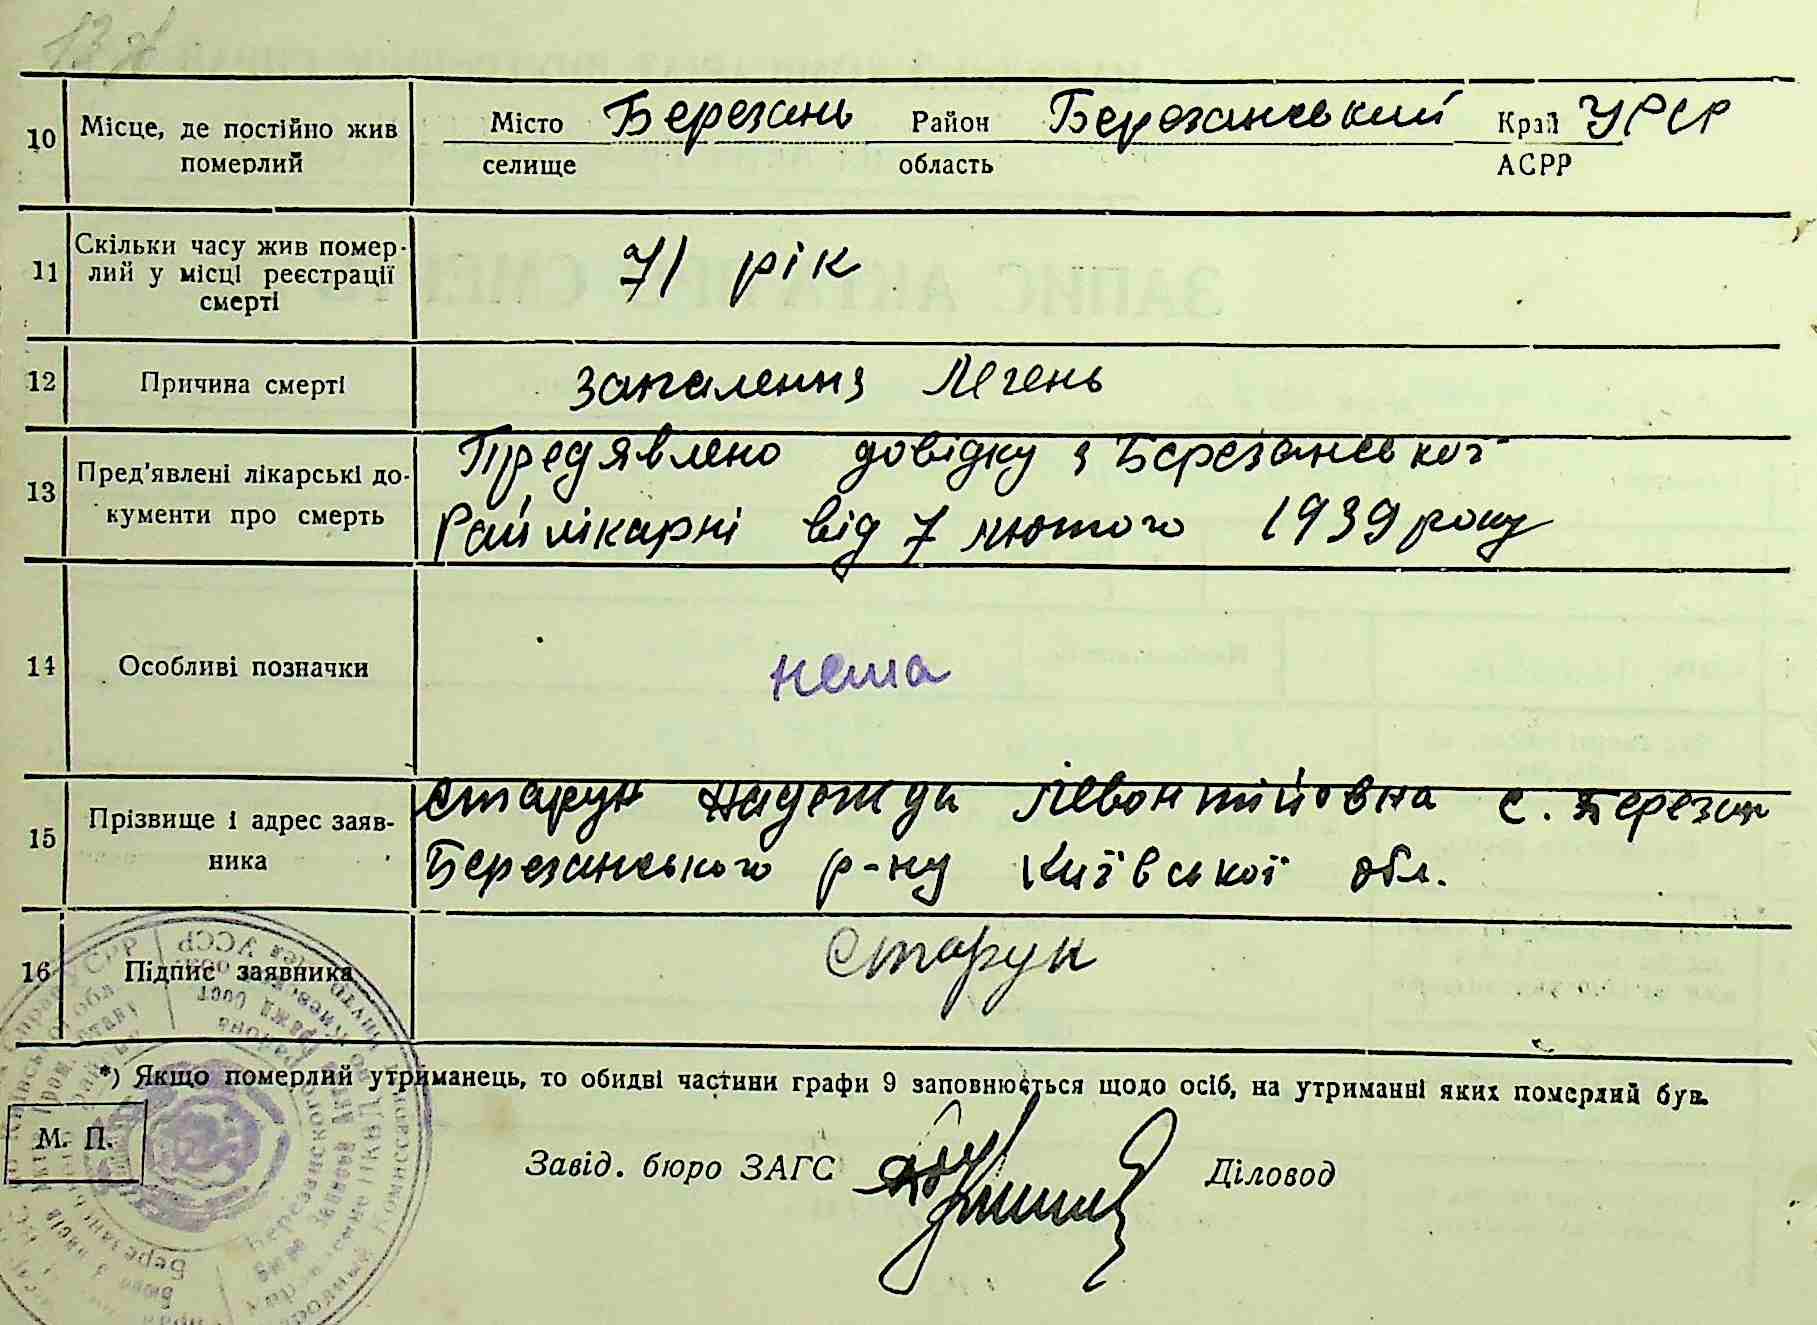 10 Місце, де постійно жив померлий
Місто Березань Район Березанський Край УРСР
селище область АСРР
11 Скільки часу жив помер-
лий у місці реєстрації
смерті
71 рік
12 Причина смерті запалення Легень
13 Пред'явлені лікарські до-
кументи про смерть
Предявлено довідку з Березанської
Райлікарні від 7 лютого 1939 року
14 Особливі позначки нема
15 Прізвище і адрес заяв-
ника
Старун Надежда Левонтіїовна с. Березан
Березанського р-ну Київської обл.
16 Підпис заявника Старун
*) Якщо померлий утриманець, то обидві частини графи 9 заповнюється щодо осіб, на утриманні яких померлий був.
М. П.
Завід. бюро ЗАГС Діловод